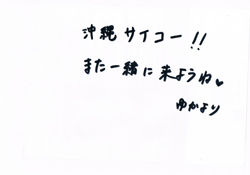 沖縄サイコー!!
また一緒に来ようね♥
ゆかより